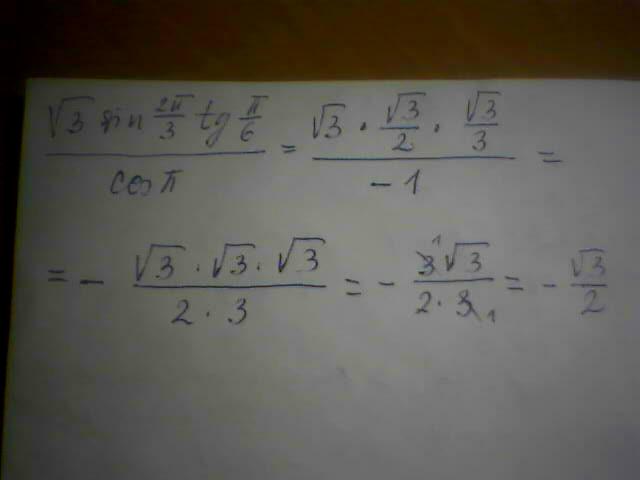 √3 sin 2π/3 tg π/6 / cos π = √3 · √3/2 · √3/3 / -1 =
= - √3 · √3 · √3 / 2 · 3 = - 3 1 √3 / 2 · 3 1 = - √3/2